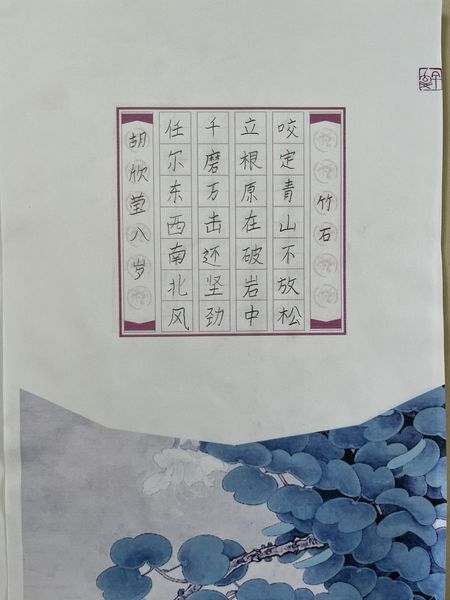 竹石
咬定青山不放松
立根原在破岩中
千磨万击还坚劲
任尔东西南北风
胡欣莹八岁